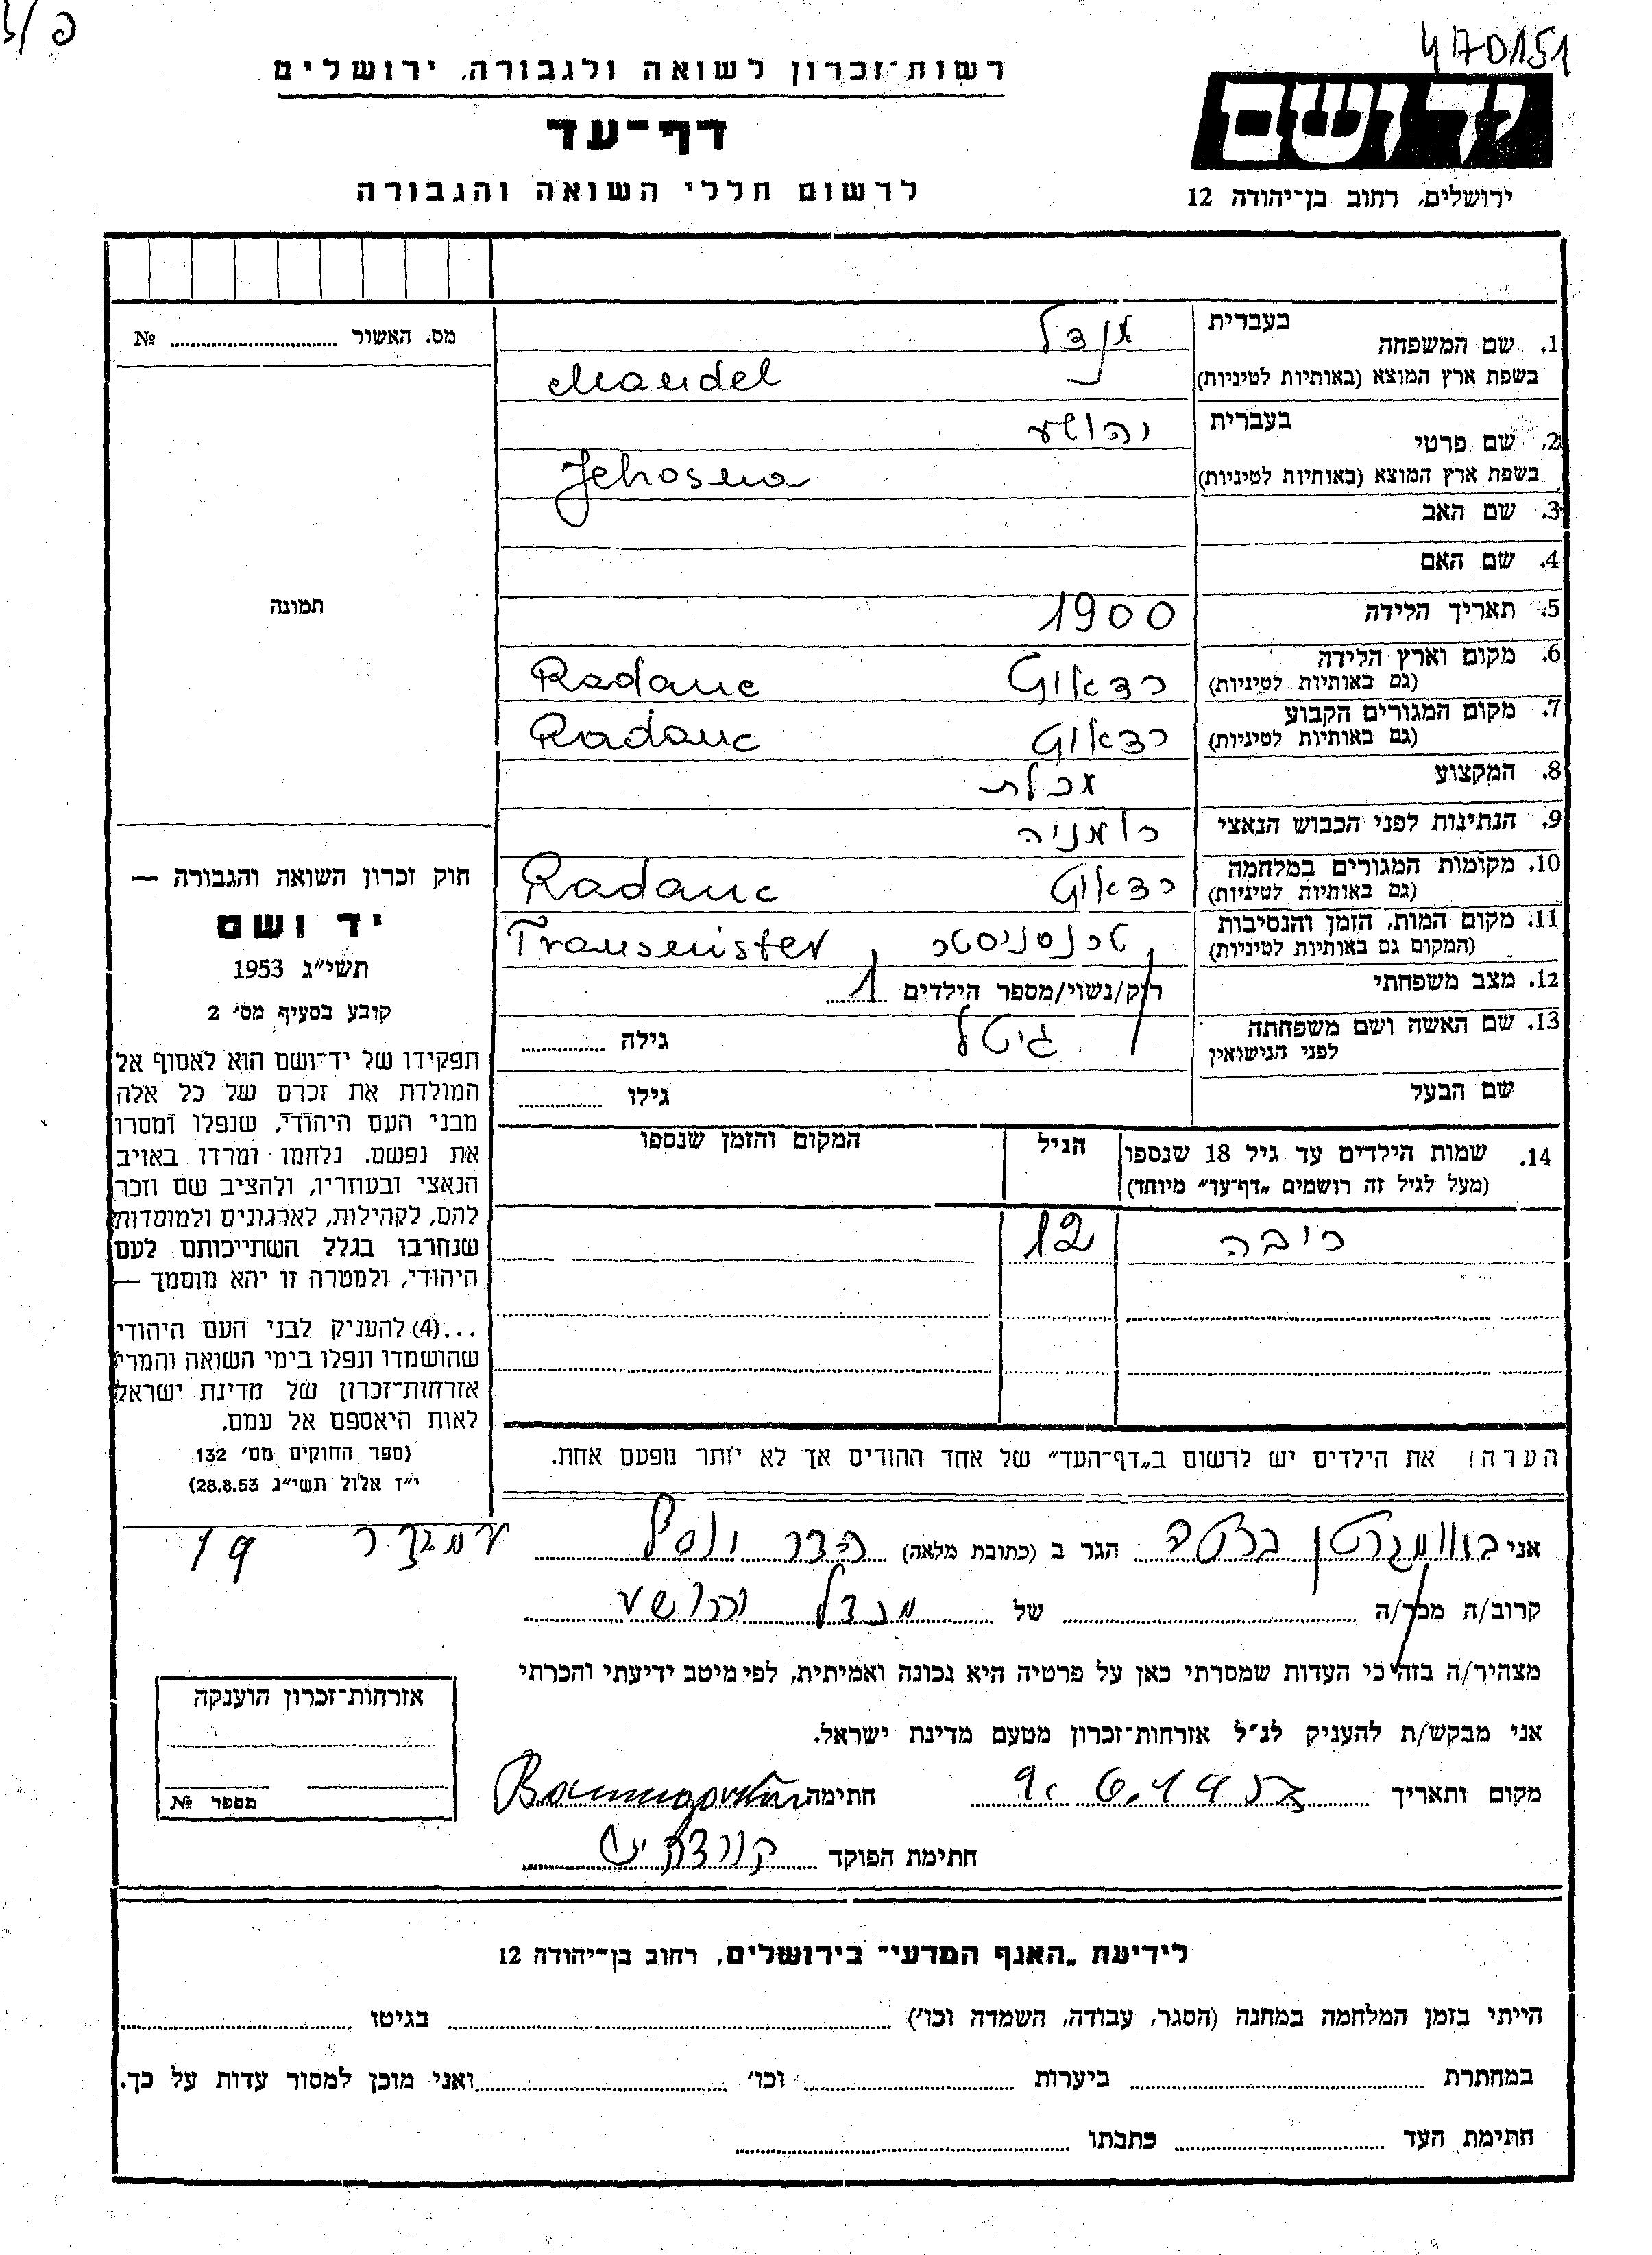 470151
רשות־זכרון לשואה ולגבורה, ירושלים
דף־עד
לרשום חללי השואה והגבורה
יד ושם
ירושלים, רחוב בן־יהודה 12
מס. האשור № 
תמונה
1. שם המשפחה בעברית מנדל
בשפת ארץ המוצא (באותיות לטיניות) Mandel
2. שם פרטי בעברית יהושע
בשפת ארץ המוצא (באותיות לטיניות) Jehosua
3. שם האב
4. שם האם
5. תאריך הלידה 1900
6. מקום וארץ הלידה (גם באותיות לטיניות) רדאוץ Radauc
7. מקום המגורים הקבוע (גם באותיות לטיניות) רדאוץ Radauc
8. המקצוע
9. הנתינות לפני הכבוש הנאצי רומניה
10. מקומות המגורים במלחמה (גם באותיות לטיניות) רדאוץ Radauc
11. מקום המות, הזמן והנסיבות (המקום גם באותיות לטיניות) טרנסניסטר Transnister
12. מצב משפחתי רוק/נשוי/מספר הילדים 1
13. שם האשה ושם משפחתה לפני הנישואין גיטל גילה
שם הבעל גילו
14. שמות הילדים עד גיל 18 שנספו (מעל לגיל זה רושמים „דף־עד״ מיוחד) הגיל המקום והזמן שנספו
ריבה 12
הערה! את הילדים יש לרשום ב„דף־העד״ של אחד ההורים אך לא יותר מפעם אחת.
חוק זכרון השואה והגבורה —
יד ושם
תשי״ג 1953
קובע בסעיף מס׳ 2
תפקידו של יד־ושם הוא לאסוף אל
המולדת את זכרם של כל אלה
מבני העם היהודי, שנפלו ומסרו
את נפשם, נלחמו ומרדו באויב
הנאצי ובעוזריו, ולהציב שם וזכר
להם, לקהילות, לארגונים ולמוסדות
שנחרבו בגלל השתייכותם לעם
היהודי, ולמטרה זו יהא מוסמך —
...(4) להעניק לבני העם היהודי
שהושמדו ונפלו בימי השואה והמרי
אזרחות־זכרון של מדינת ישראל
לאות היאספם אל עמם.
(ספר החוקים מס׳ 132
י״ז אלול תשי״ג 28.8.53)
אני באומגרטן ברטה הגר ב (כתובת מלאה) הדר 19
קרוב/ה מכר/ה של מנדל יהושע
מצהיר/ה בזה כי העדות שמסרתי כאן על פרטיה היא נכונה ואמיתית, לפי מיטב ידיעתי והכרתי
אני מבקש/ת להעניק לנ״ל אזרחות־זכרון מטעם מדינת ישראל.
מקום ותאריך חתימה Baumgarten
חתימת הפוקד
אזרחות־זכרון הוענקה
מספר №
לידיעת „האגף המדעי״ בירושלים, רחוב בן־יהודה 12
הייתי בזמן המלחמה במחנה (הסגר, עבודה, השמדה וכו׳) בגיטו
במחתרת ביערות וכו׳ ואני מוכן למסור עדות על כך.
חתימת העד כתבתו